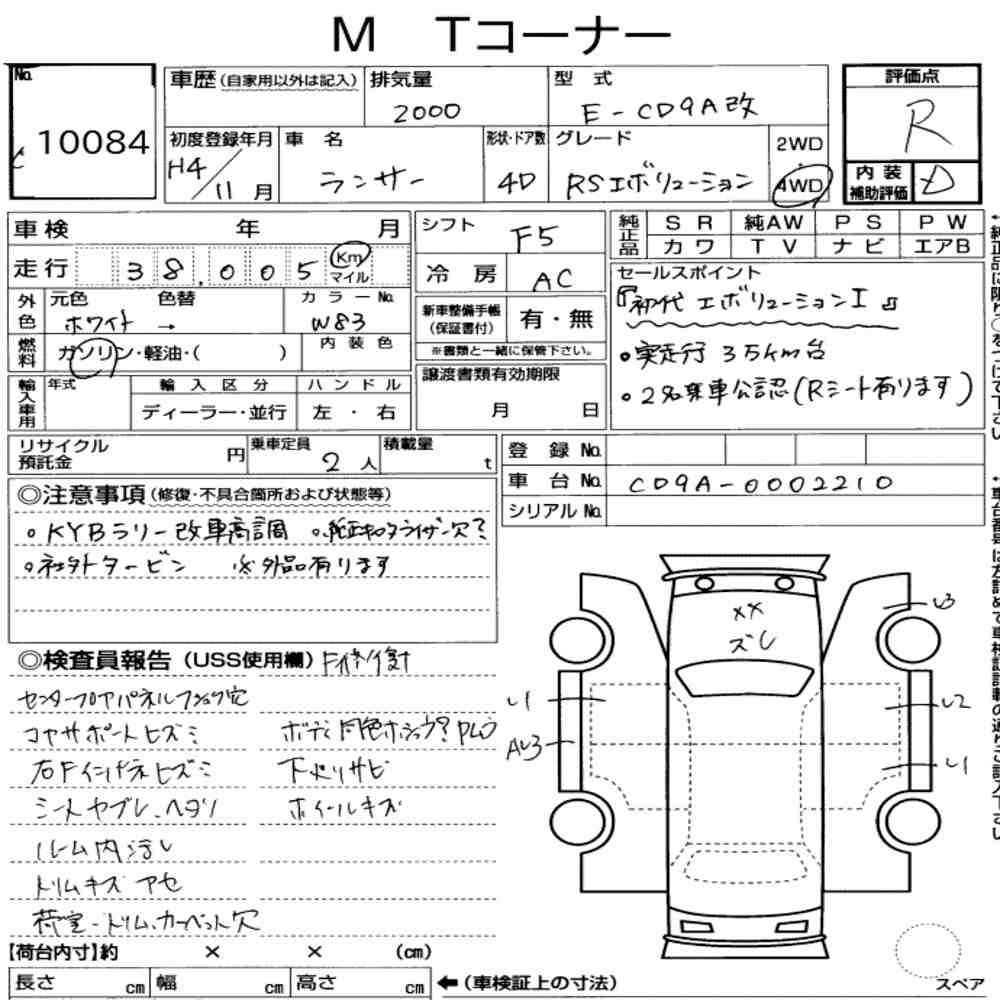 M Tコーナー
No. 10084
車歴 (自家用以外は記入)
排気量 2000
型式 E-CD9A改
評価点 R
初度登録年月 H4/11月
車名 ランサー
形状・ドア数 4D
グレード RSエボリューション
2WD
・
4WD
内装補助評価 D
車検 年 月
シフト F5
純正品 SR 純AW PS PW
カワ TV ナビ エアB
走行 38,005 Km マイル
冷房 AC
セールスポイント
『初代エボリューションⅠ』
外色 元色 ホワイト → 色替 カラーNo. W83
新車整備手帳 (保証書付) 有・無
※書類と一緒に保管下さい。
。実走行 3万Km台
燃料 ガソリン・軽油・( ) 内装色
。2名乗車公認 (Rシート有ります)
輸入車用 年式 輸入区分 ハンドル
ディーラー・並行 左・右
譲渡書類有効期限
月 日
リサイクル預託金 円
乗車定員 2人
積載量 t
登録No.
車台No. CD9A-0002210
シリアルNo.
◎注意事項 (修復・不具合箇所および状態等)
。KYBラリー改車高調 。純正キャタライザー欠?
。社外タービン ※外品有ります
◎検査員報告 (USS使用欄) F修イ針
センターフロアパネルフショク穴
コアサポートヒズミ ボディ同色ホショウ?
右Fインパネヒズミ 下廻りサビ
シートヤブレ、ヘタリ ホイールキズ
ルーム内汚レ
トリムキズ アセ
荷室・トリム、カーペット欠
××
ズレ
U3
U1
U2
AU3
U1
【荷台内寸】約 × × (cm)
長さ cm 幅 cm 高さ cm
←(車検証上の寸法)
スペア